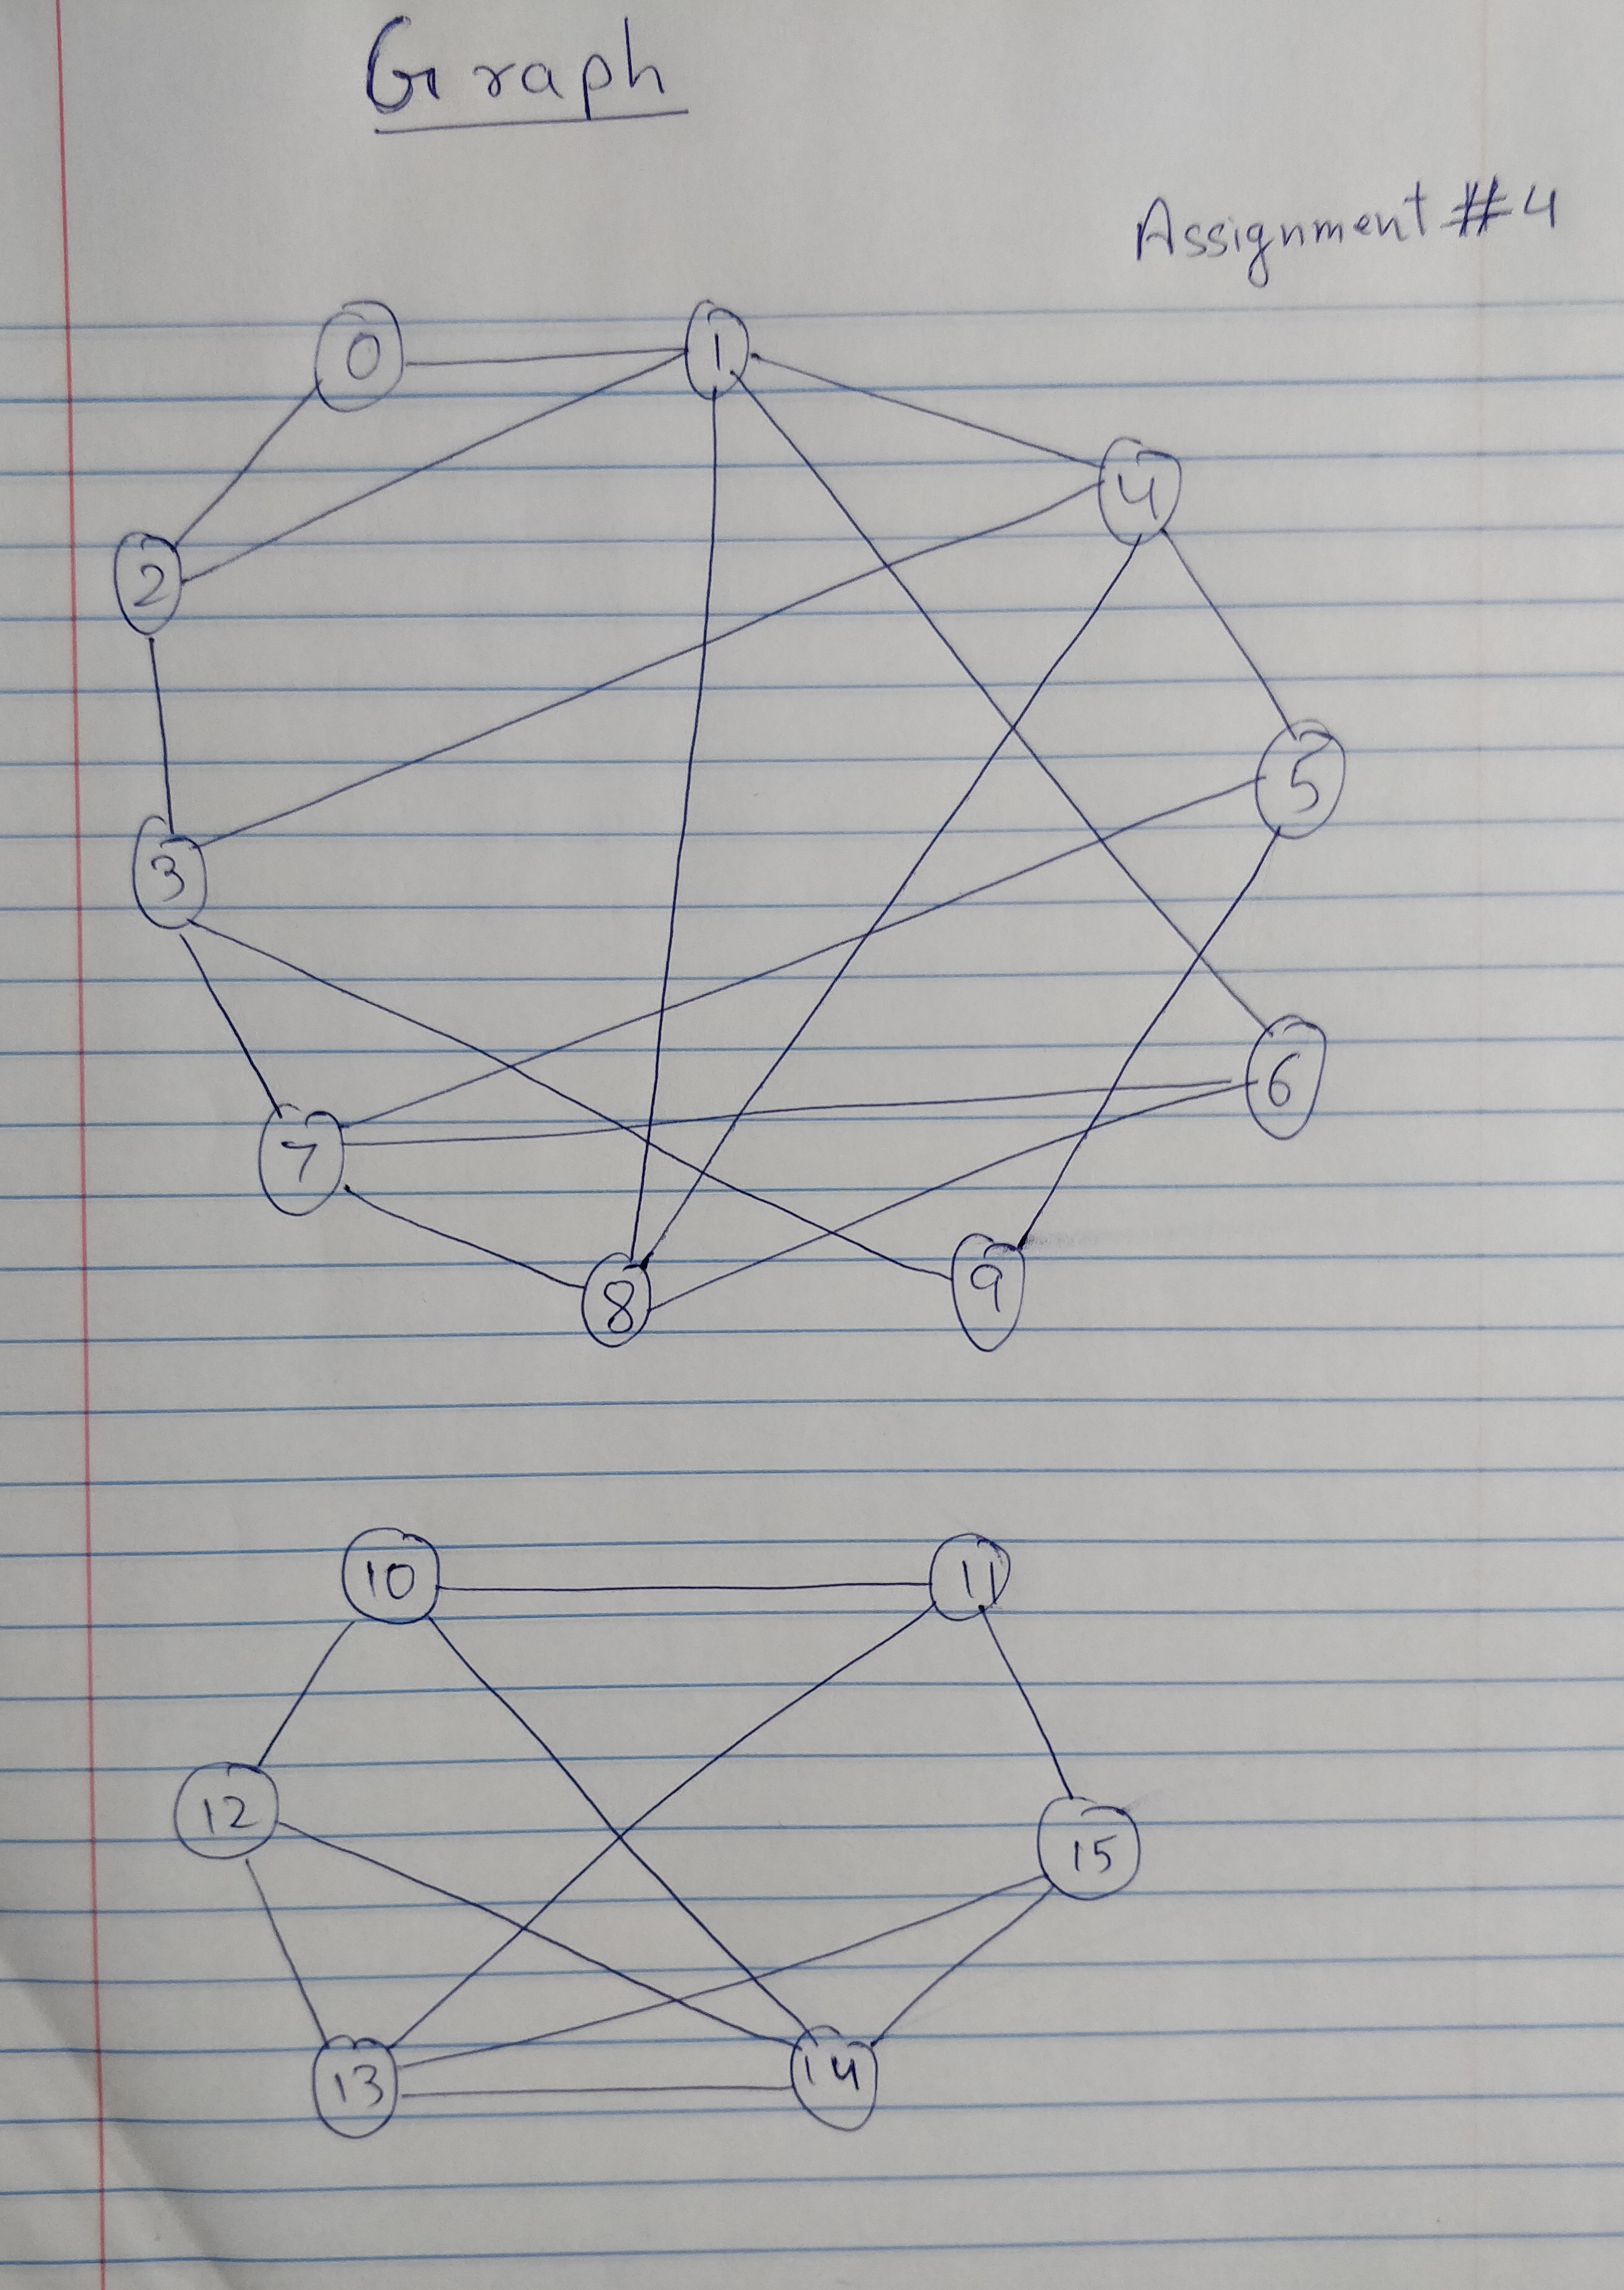 Graph
Assignment #4
0 1
4
2
5
3
6
7
8 9
10 11
12
15
13 14